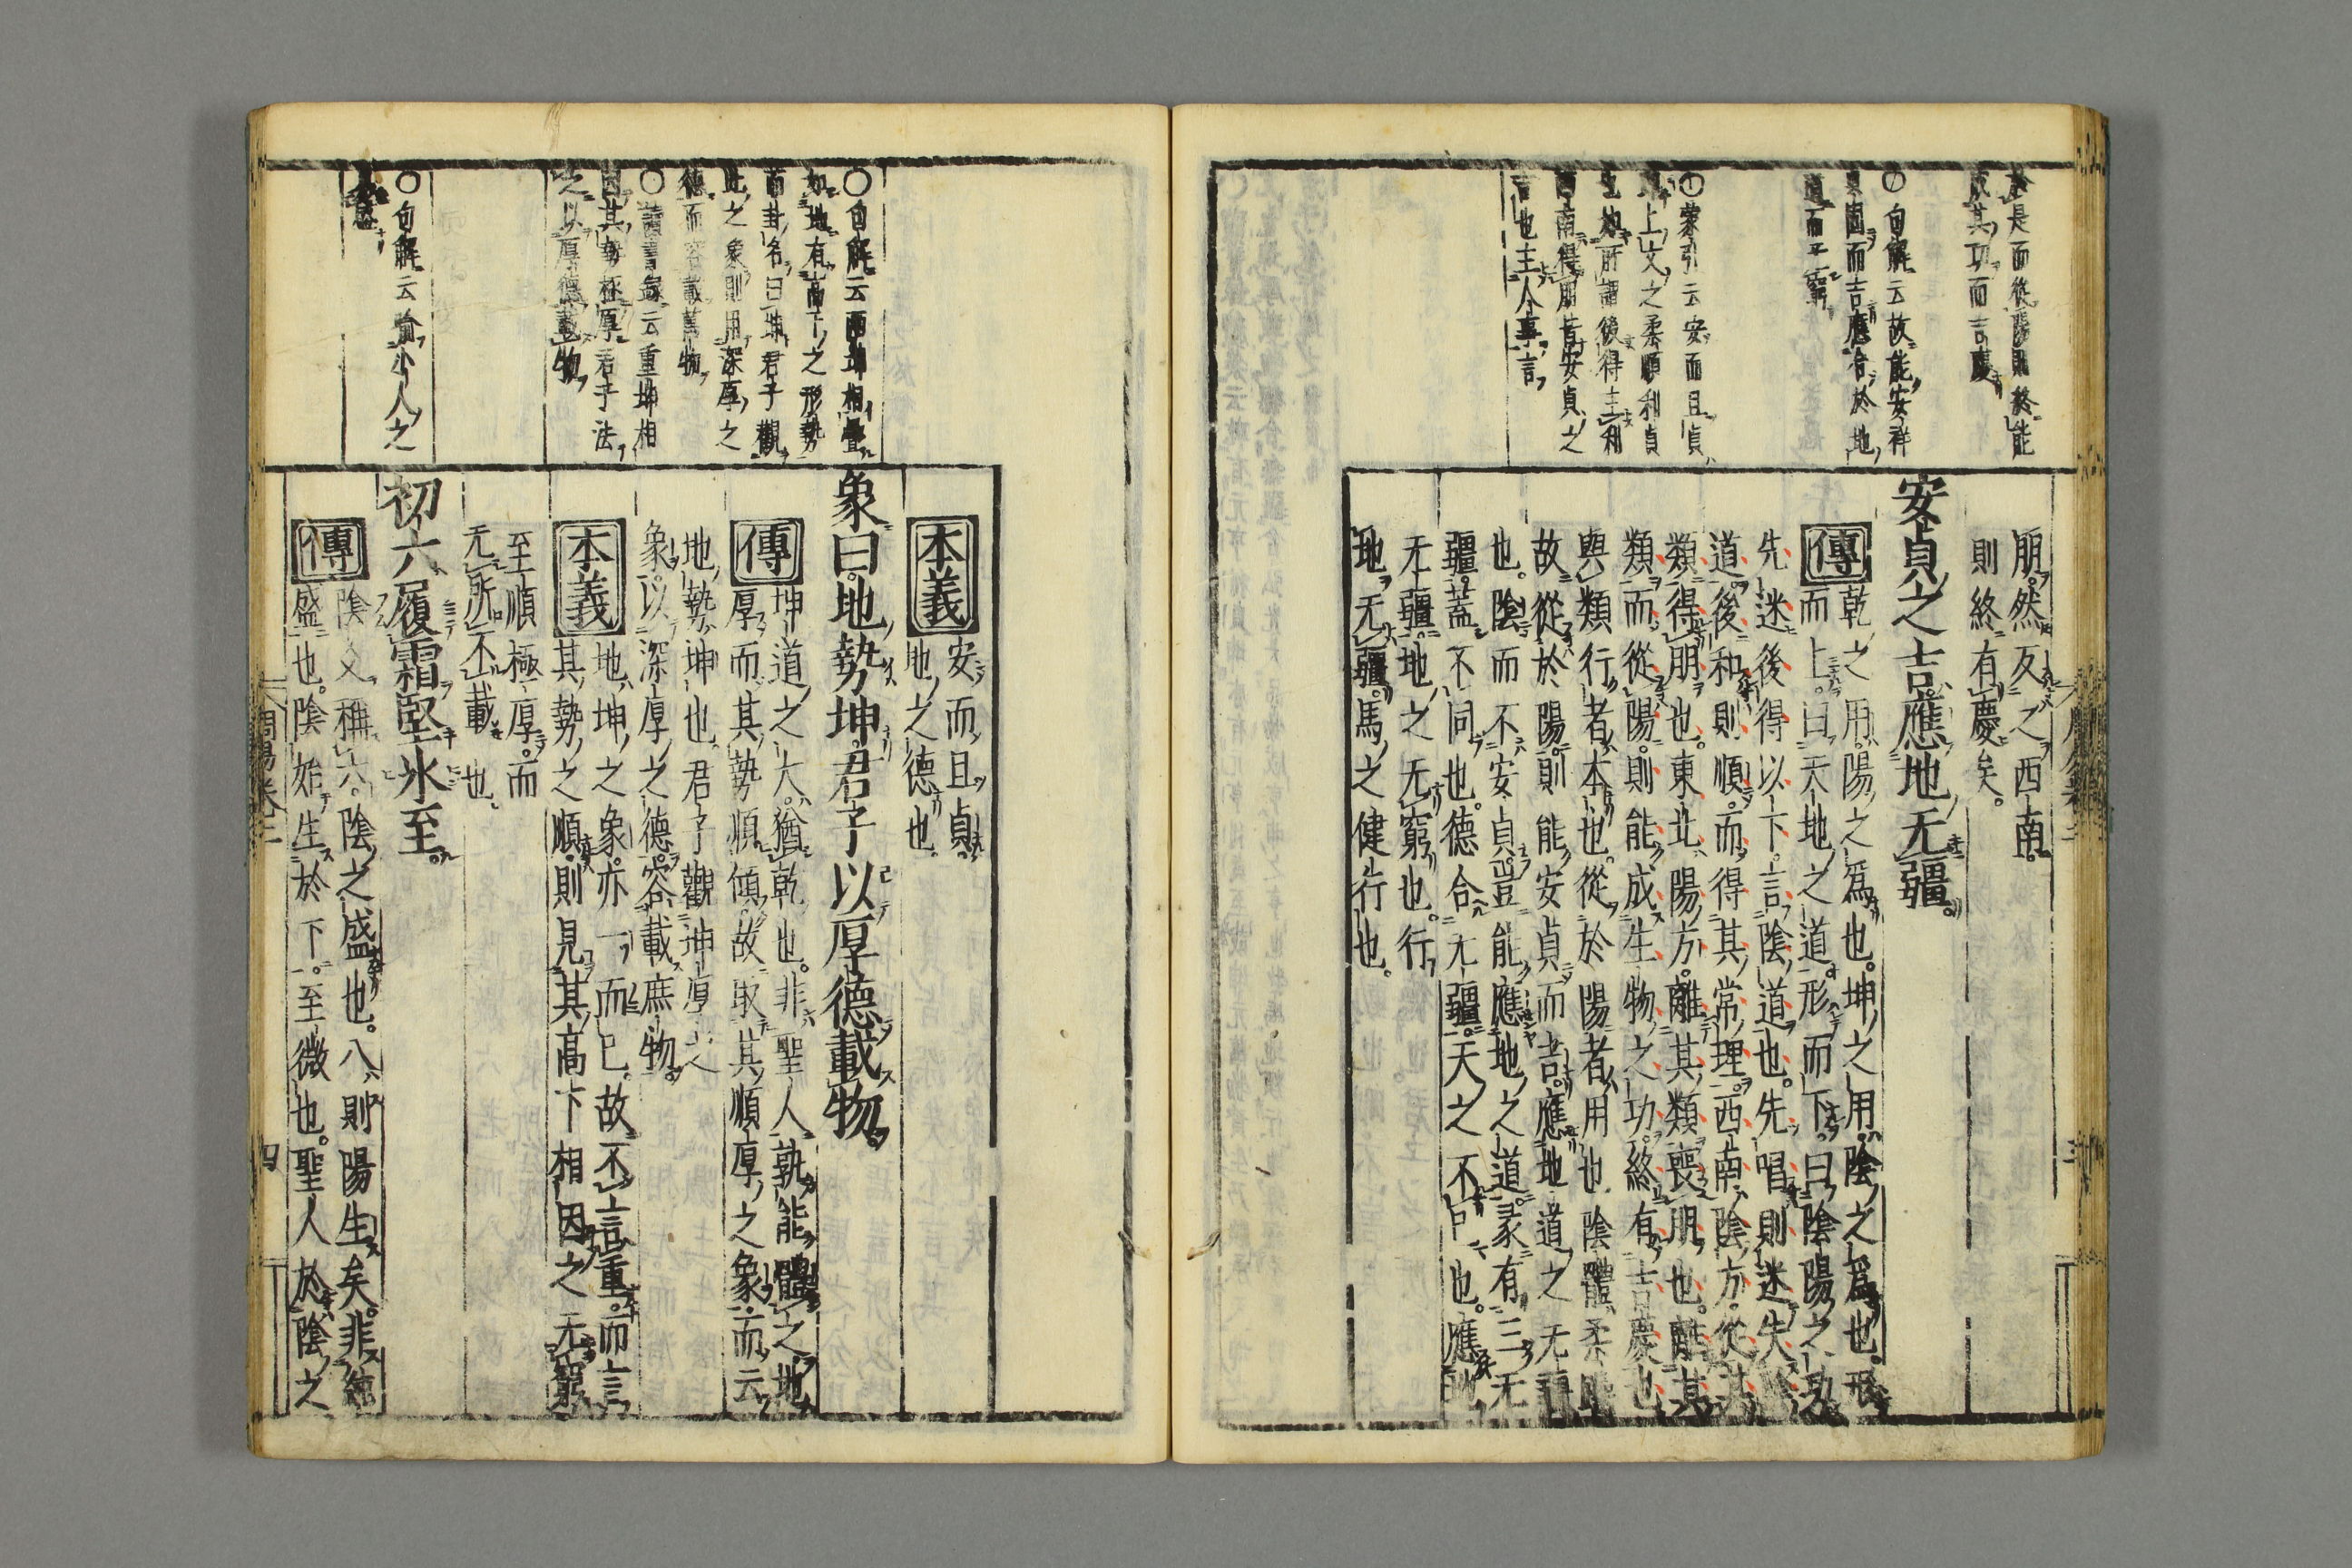 朋然反之西南
則終有慶矣
安貞之吉應地无疆
傳
乾之用陽之爲也坤之用陰之爲也形
而上曰天地之道形而下曰陰陽之功
先迷後得以下言陰道也先唱則迷失
道後和則順而得其常理西南陰方從其
類得朋也東北陽方離其類喪朋也離其
類而從陽則能成生物之功終有吉慶也
與類行者本也從於陽者用也陰體柔
故從於陽則能安貞而吉應地道之无疆
也陰而不安貞豈能應地之道彖有三无
疆蓋不同也德合无疆天之不已也應地
无疆地之无窮也行
地无疆馬之健行也
是而從陽則終能
其功而吉慶
○句解云故能安祥
固而吉應合於地
道而无窮
○蒙引云安而且貞
上文之柔順利貞
也地所謂後得主利
西南得朋皆安貞之
言也主人事言
本義
安而且貞
地之德也
象曰地勢坤君子以厚德載物
傳
坤道之大猶乾也非聖人孰能體之地
厚而其勢順傾故取其順厚之象而云
地勢坤也君子觀坤厚之
象以深厚之德容載庶物
本義
地坤之象亦一而已故不言重而言
其勢之順則見其高下相因之无窮
至順極厚而
无所不載也
初六履霜堅氷至
傳
陰爻稱六陰之盛也八則陽生矣非純
盛也陰始生於下至微也聖人於陰之
○句解云兩坤相疊
如地有高下之形勢
而卦名曰坤君子觀
此之象則用深厚之
德而容載萬物
○讀書錄云重坤相
因其勢極厚君子法
之以厚德載物
○句解云喻小人之
周易卷二
四
三